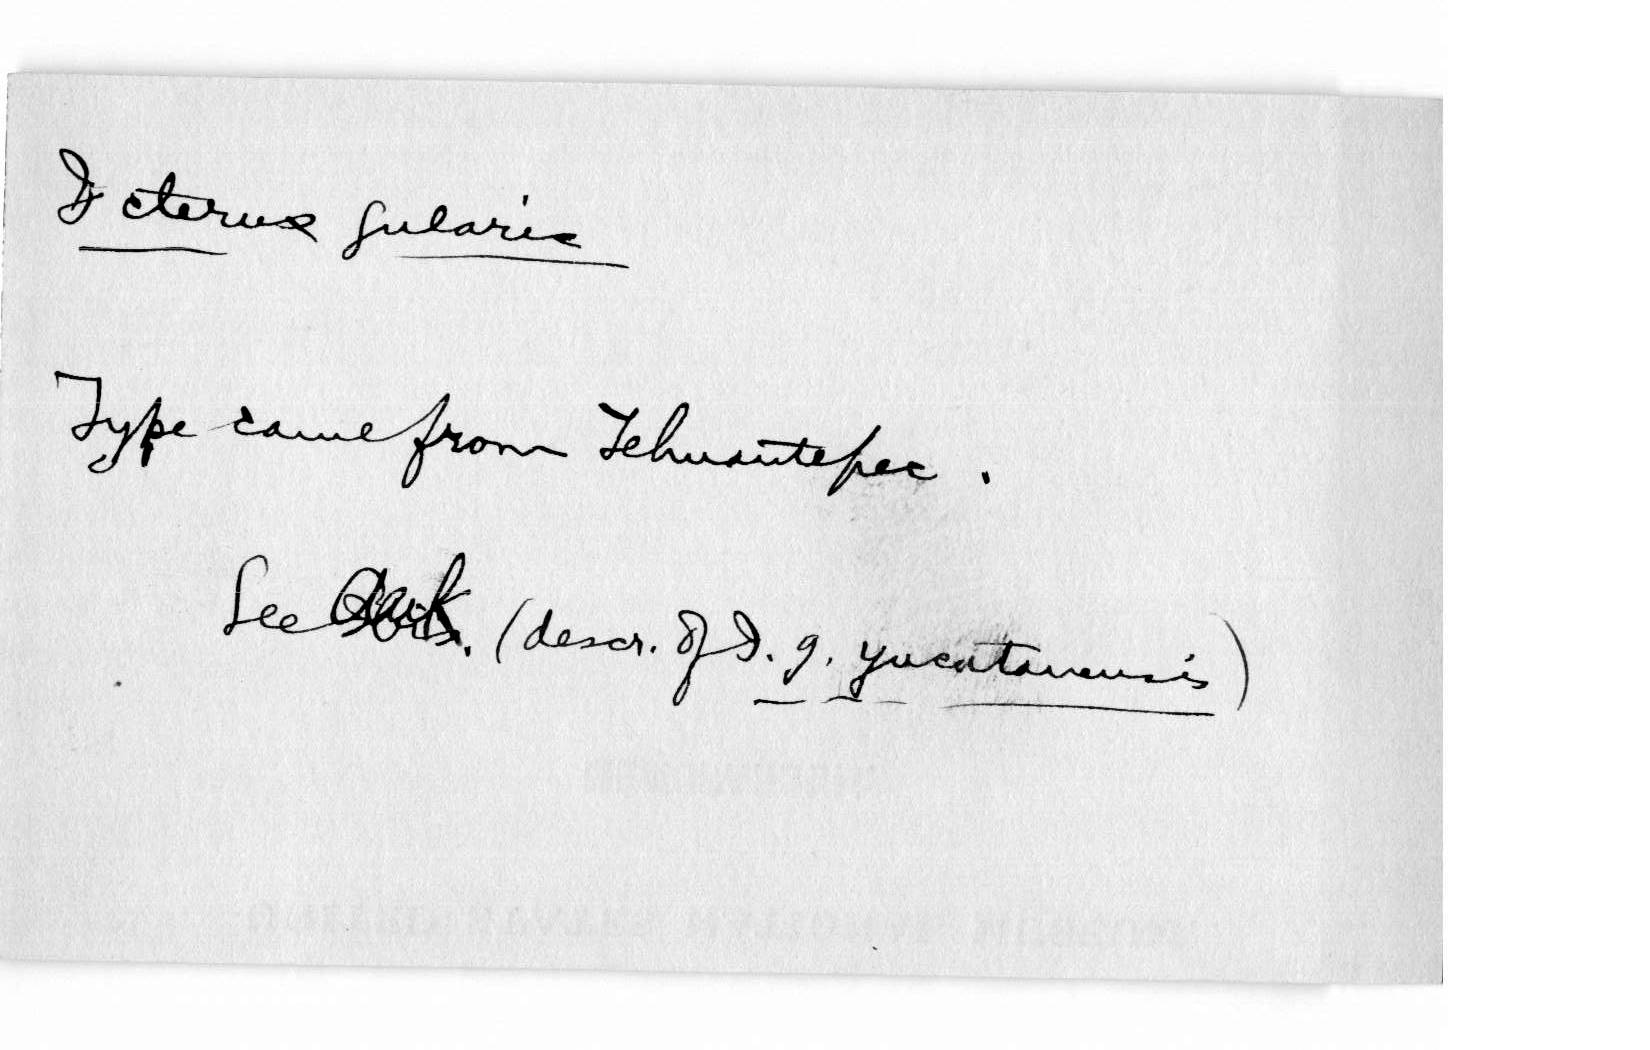 Icterus gularis
Type came from Tehuantepec.
See Auk. (descr. of I. g. yucatanensis)